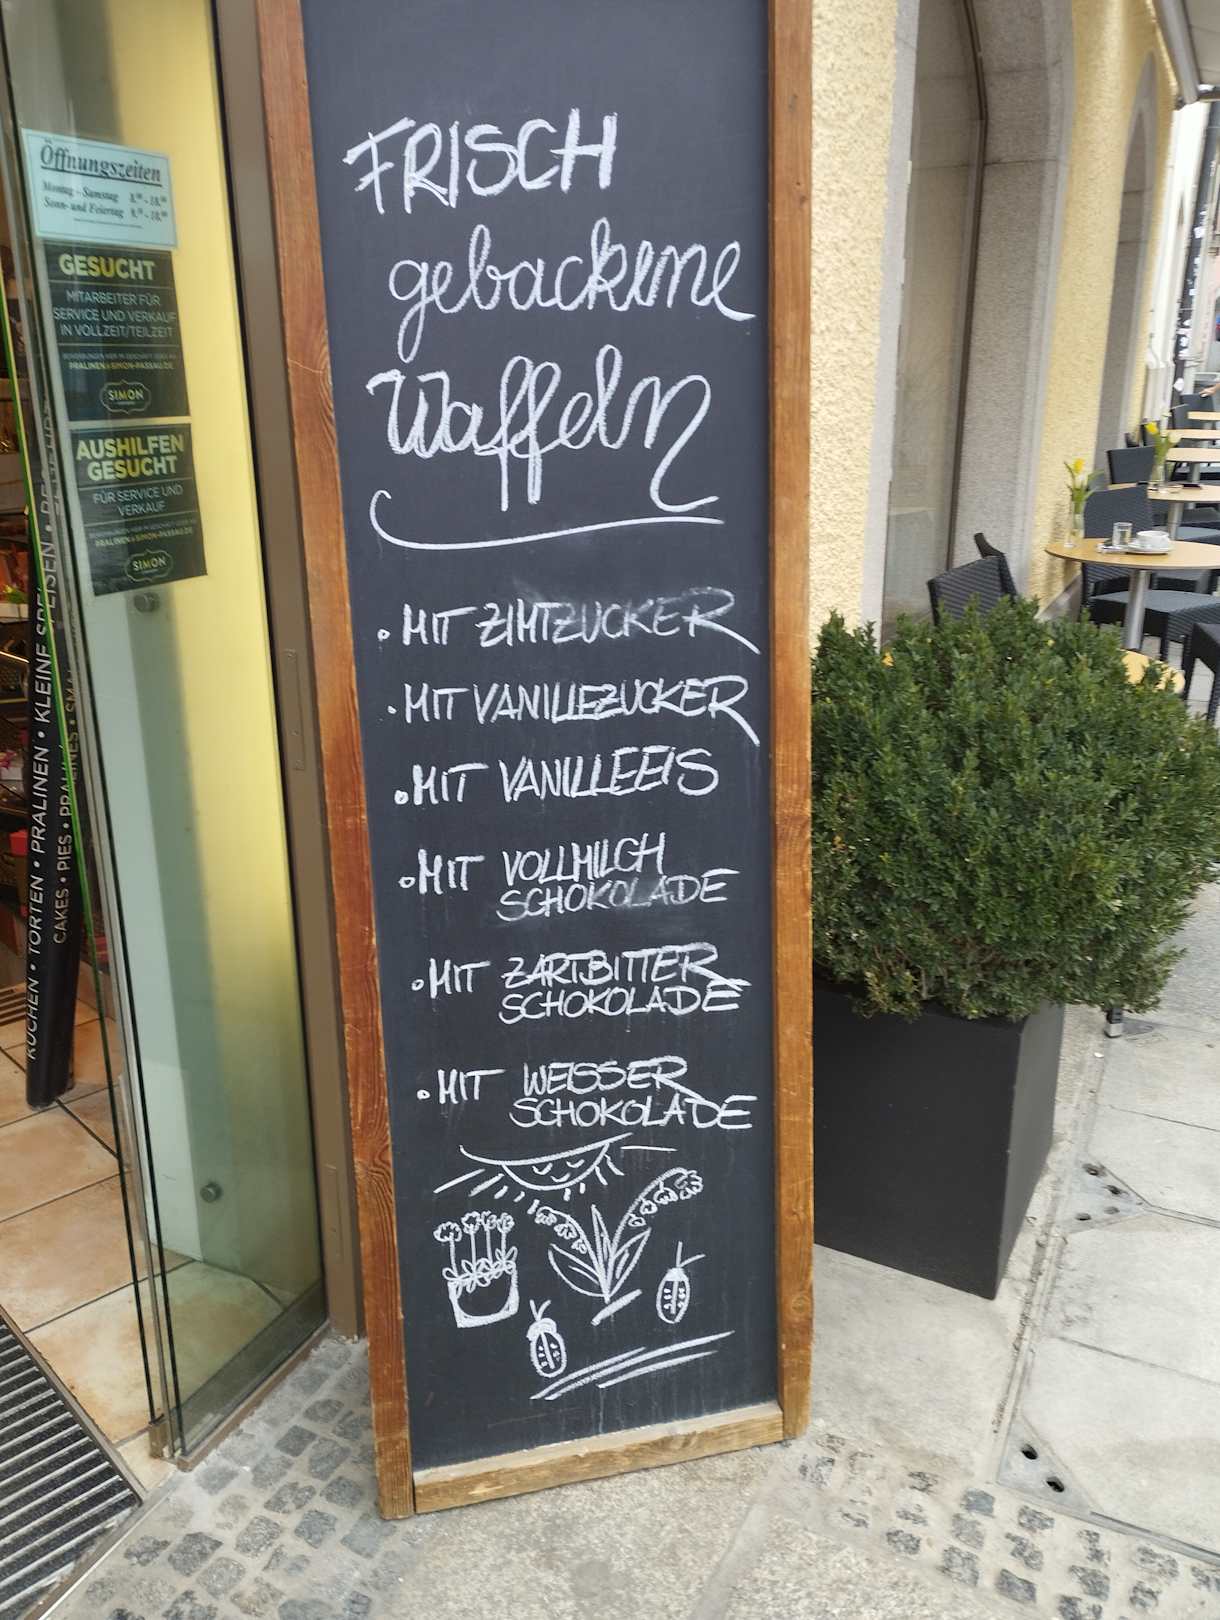 Öffnungszeiten
Montag - Samstag 8.⁰⁰ - 18.⁰⁰
Sonn- und Feiertag 9.⁰⁰ - 18.⁰⁰
GESUCHT
MITARBEITER FÜR
SERVICE UND VERKAUF
IN VOLLZEIT/TEILZEIT
PRALINEN@SIMON-PASSAU.DE
SIMON
AUSHILFEN
GESUCHT
FÜR SERVICE UND
VERKAUF
PRALINEN@SIMON-PASSAU.DE
SIMON
KUCHEN • TORTEN • PRALINEN • KLEINE SPEISEN •
CAKES • PIES • PRALINES •
FRISCH
gebackene
Waffeln
• MIT ZIMTZUCKER
• MIT VANILLEZUCKER
• MIT VANILLEEIS
• MIT VOLLMILCH
SCHOKOLADE
• MIT ZARTBITTER
SCHOKOLADE
• MIT WEISSER
SCHOKOLADE